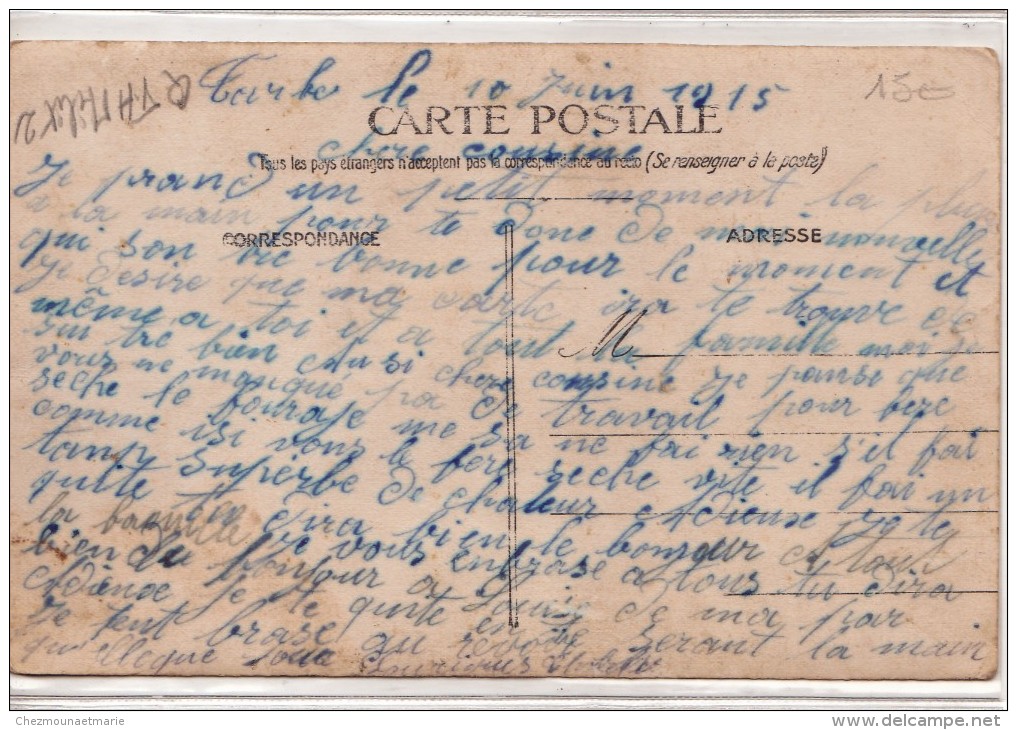 Tarbe le 10 Juin 1915
15€
CARTE POSTALE
chère cousine
Tous les pays étrangers n'acceptent pas la correspondance au recto (Se renseigner à la poste)
Je prand un petit moment la plume
a la main pour te done de mai nouvelle
CORRESPONDANCE
ADRESSE
qui son tre bonne pour le moment et
je desire que ma carte ira te trouve de
même a toi et a tout la famille moi je
sui tre bien ausi chere cousine je panse que
vous ne manqué pa de travail pour fere
seche le fouraje me sa ne fai rien s'il fai
comme isi vous le fere seche vite il fai un
tamp superbe de chaleur Adieuse je te
quite dira bien le bonjour a tout
la je vous enbrase a tous tu dira
bien du bonjour a Louise de ma par
Adieuse je te quite en te serant la main
Je tent brase au revoir
M
Chezmounaetmarie
www.delcampe.net